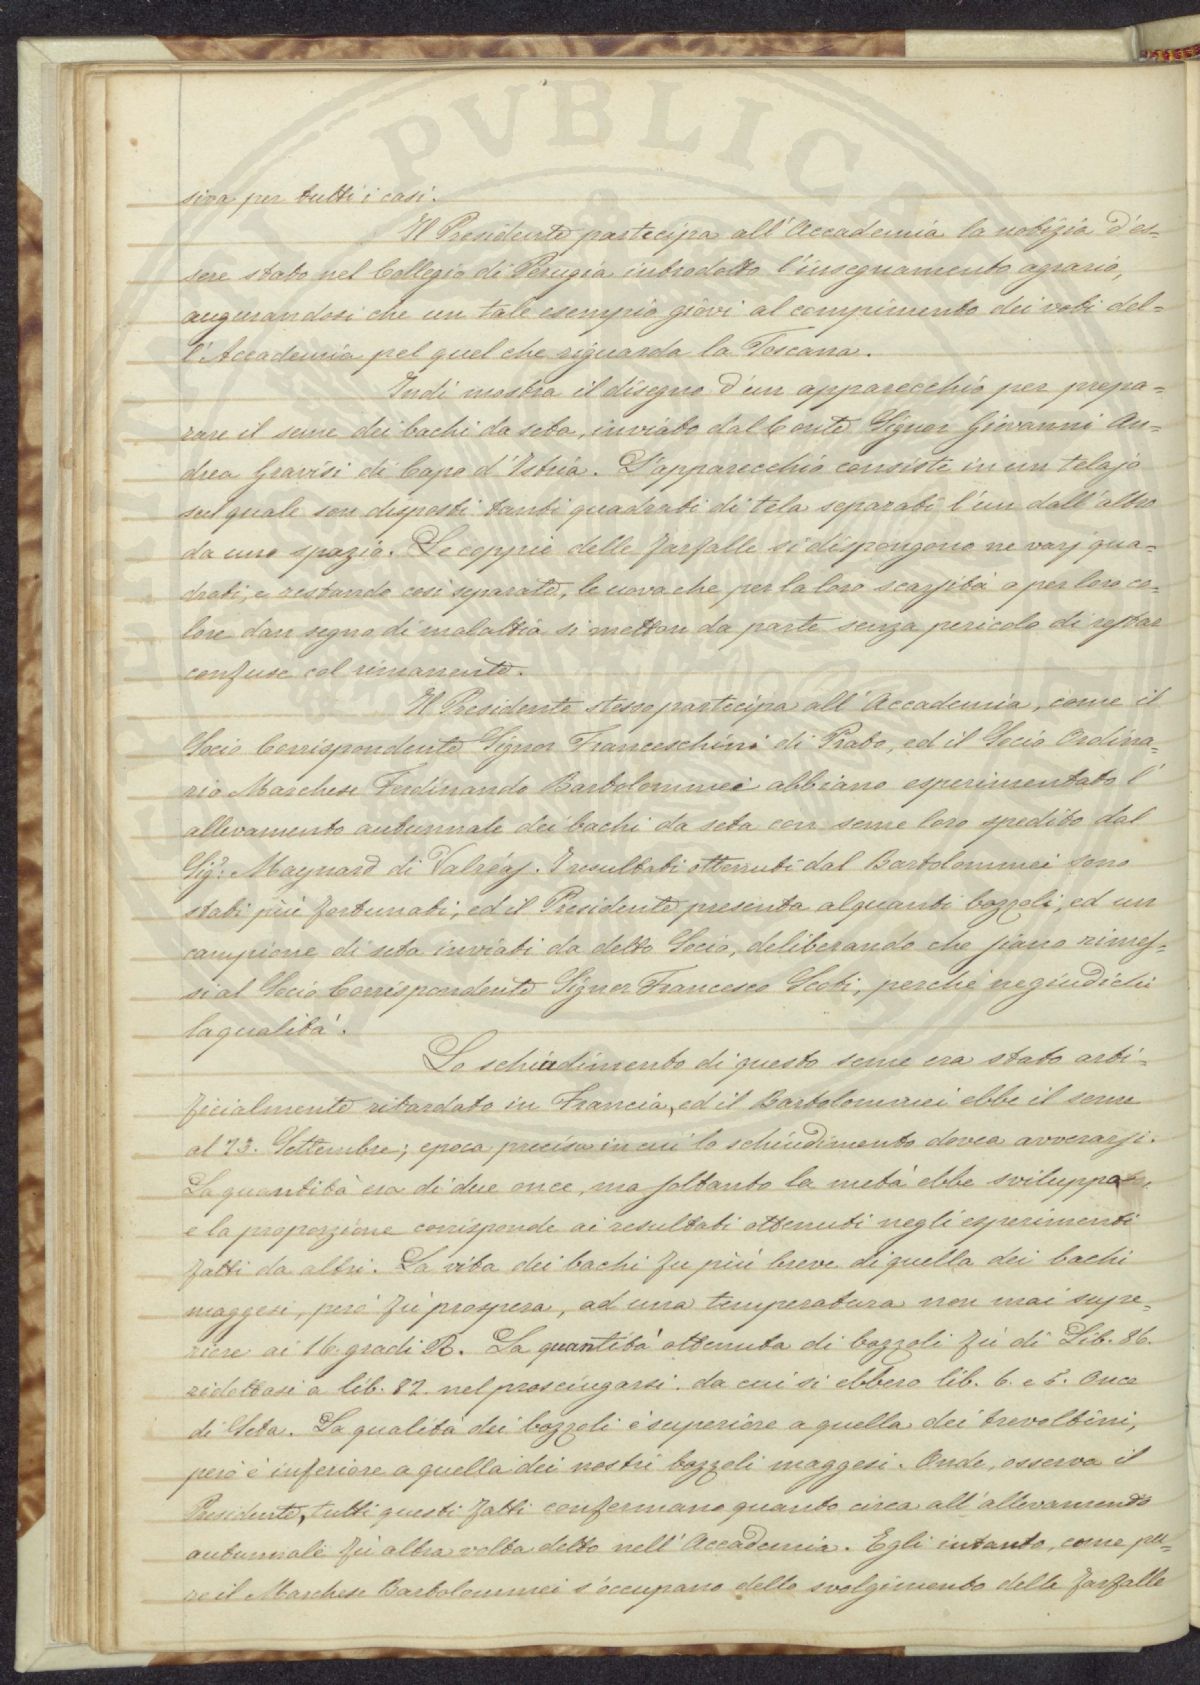 PVBLICA
siva per tutti i casi.
Il Presidente partecipa all'Accademia la notizia d'es-
sere stato nel Collegio di Perugia introdotto l'insegnamento agrario,
augurandosi che un tale esempio giovi al compimento dei voti del-
l'Accademia pel quel che riguarda la Toscana.
Indi mostra il disegno d'un apparecchio per prepa-
rare il seme dei bachi da seta, inviato dal Conte Signor Giovanni An-
drea Gravisi di Capo d'Istria. L'apparecchio consiste in un telajo
sul quale son disposti tanti quadrati di tela separati l'un dall'altro
da uno spazio. Le coppie delle farfalle si dispongono ne varj qua-
drati, e restando così separate, le uova che per la loro scarsità o per loro co-
lore dan segno di malattia si metton da parte senza pericolo di restar
confuse col rimanente.
Il Presidente stesso partecipa all'Accademia, come il
Socio Corrispondente Signor Franceschini di Prato, ed il Socio Ordina-
rio Marchese Ferdinando Bartolommei abbiano esperimentato l'
allevamento autunnale dei bachi da seta con seme loro spedito dal
Sigr. Maynard di Valréas. I resultati ottenuti dal Bartolommei sono
stati più fortunati, ed il Presidente presenta alquanti bozzoli, ed un
campione di seta inviati da detto Socio, deliberando che siano rimes-
si al Socio Corrispondente Signor Francesco Scoti, perché ne giudichi
la qualità.
Lo schiudimento di questo seme era stato arti-
ficialmente ritardato in Francia, ed il Bartolommei ebbe il seme
al 23. Settembre; epoca precisa in cui lo schiudimento dovea avverarsi.
La quantità era di due once, ma soltanto la metà ebbe sviluppo,
e la proporzione corrisponde ai resultati ottenuti negli esperimenti
fatti da altri. La vita dei bachi fu più breve di quella dei bachi
maggesi, però fù prospera, ad una temperatura non mai supe-
riore ai 16. gradi R. La quantità ottenuta di bozzoli fù di Lib. 86.
ridottasi a lib. 82. nel prosciugarsi. da cui si ebbero lib. 6. e 5. Once
di Seta. La qualità dei bozzoli è superiore a quella dei trevoltini,
però è inferiore a quella dei nostri bozzoli maggesi. Onde, osserva il
Presidente, tutti questi fatti confermano quanto circa all'allevamento
autunnale fù altra volta detto nell'Accademia. Egli intanto, come pu-
re il Marchese Bartolommei s'occupano dello svolgimento delle farfalle